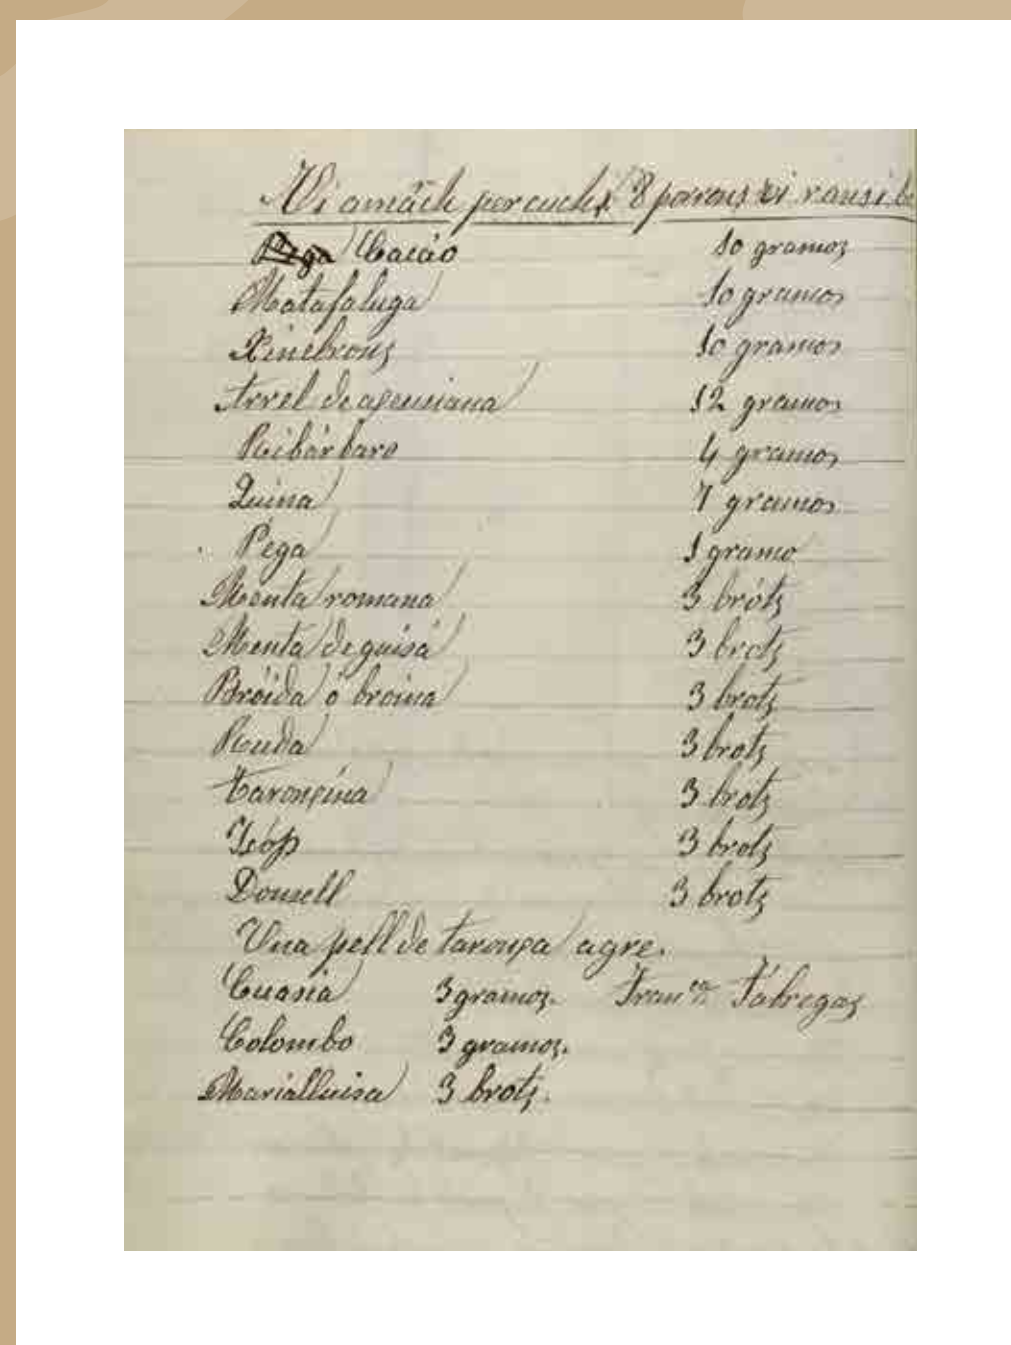 Vi amách per cuchs. 8 porrons vi ransi b
Cacáo 10 gramos
Matafaluga 10 gramos
Xinebrons 10 gramos
Arrel de agensiana 12 gramos
Ruibárbaro 4 gramos
Quina 7 gramos
Pega 1 gramo
Menta romana 3 bróts
Menta de guisá 3 brots
Bróida ó broina 3 brots
Ruda 3 brots
Tarongina 3 brots
3 brots
Donsell 3 brots
Una pell de taronga agre.
Cuasia 3 gramos. Fran^co Fábregas
Colombo 3 gramos.
Marialluisa 3 brots.